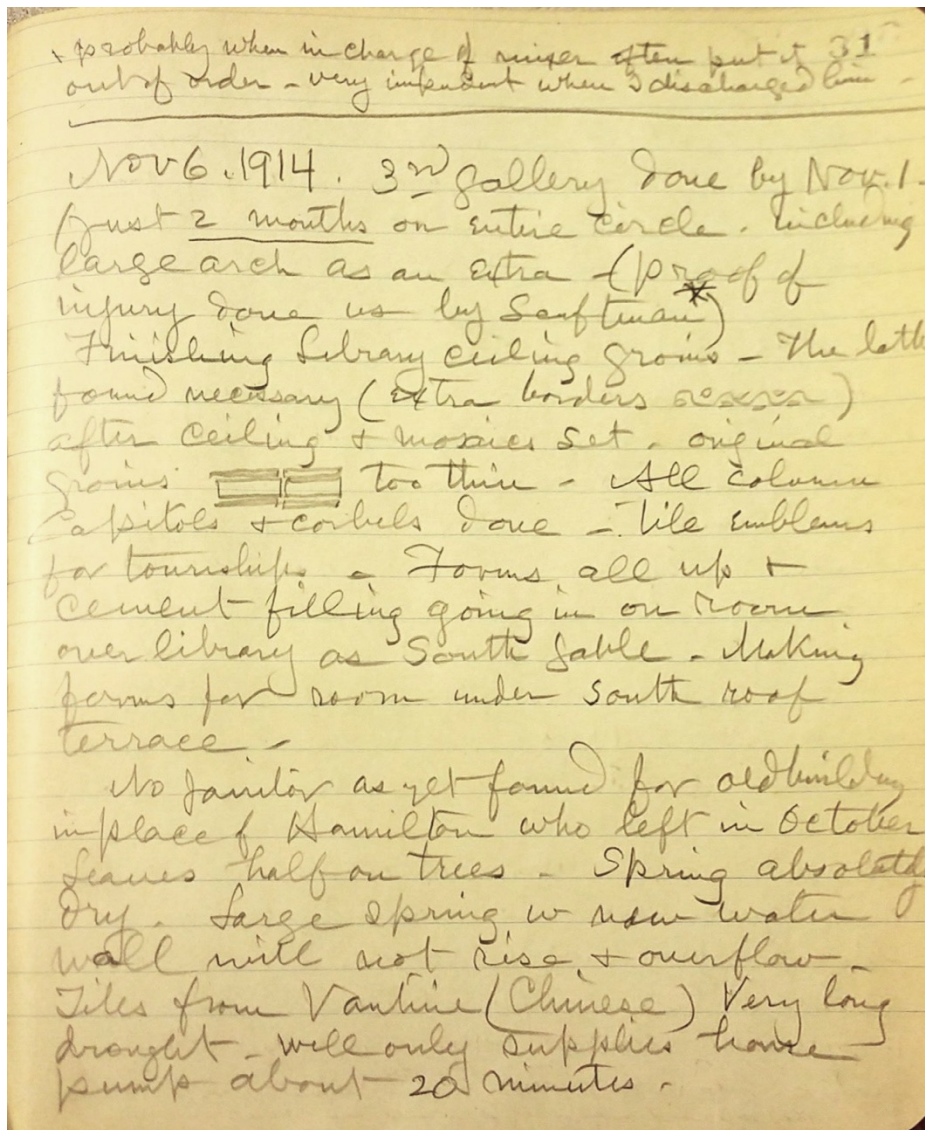 + probably when in charge of mixer often put it 31
out of order - very impudent when I discharged him -
Nov 6. 1914. 3rd gallery done by Nov. 1.
(just 2 months on entire circle. including
large arch as an extra - (proof of
injury done us by Senftman*)
Finishing Library ceiling groins - The latter
found necessary (extra borders)
after ceiling + mosaics set. original
groins too thin - All column
capitols + corbels done - Tile emblems
for townships - Forms all up +
cement filling going in on room
over library as South gable - Making
forms for room under South roof
terrace -
No janitor as yet found for old building
in place of Hamilton who left in October
Leaves half on trees - Spring absolutely
dry. Large spring w new water
wall will not rise + overflow -
Tiles from Vantine (Chinese) Very long
drought - well only supplies house
pump about 20 minutes.